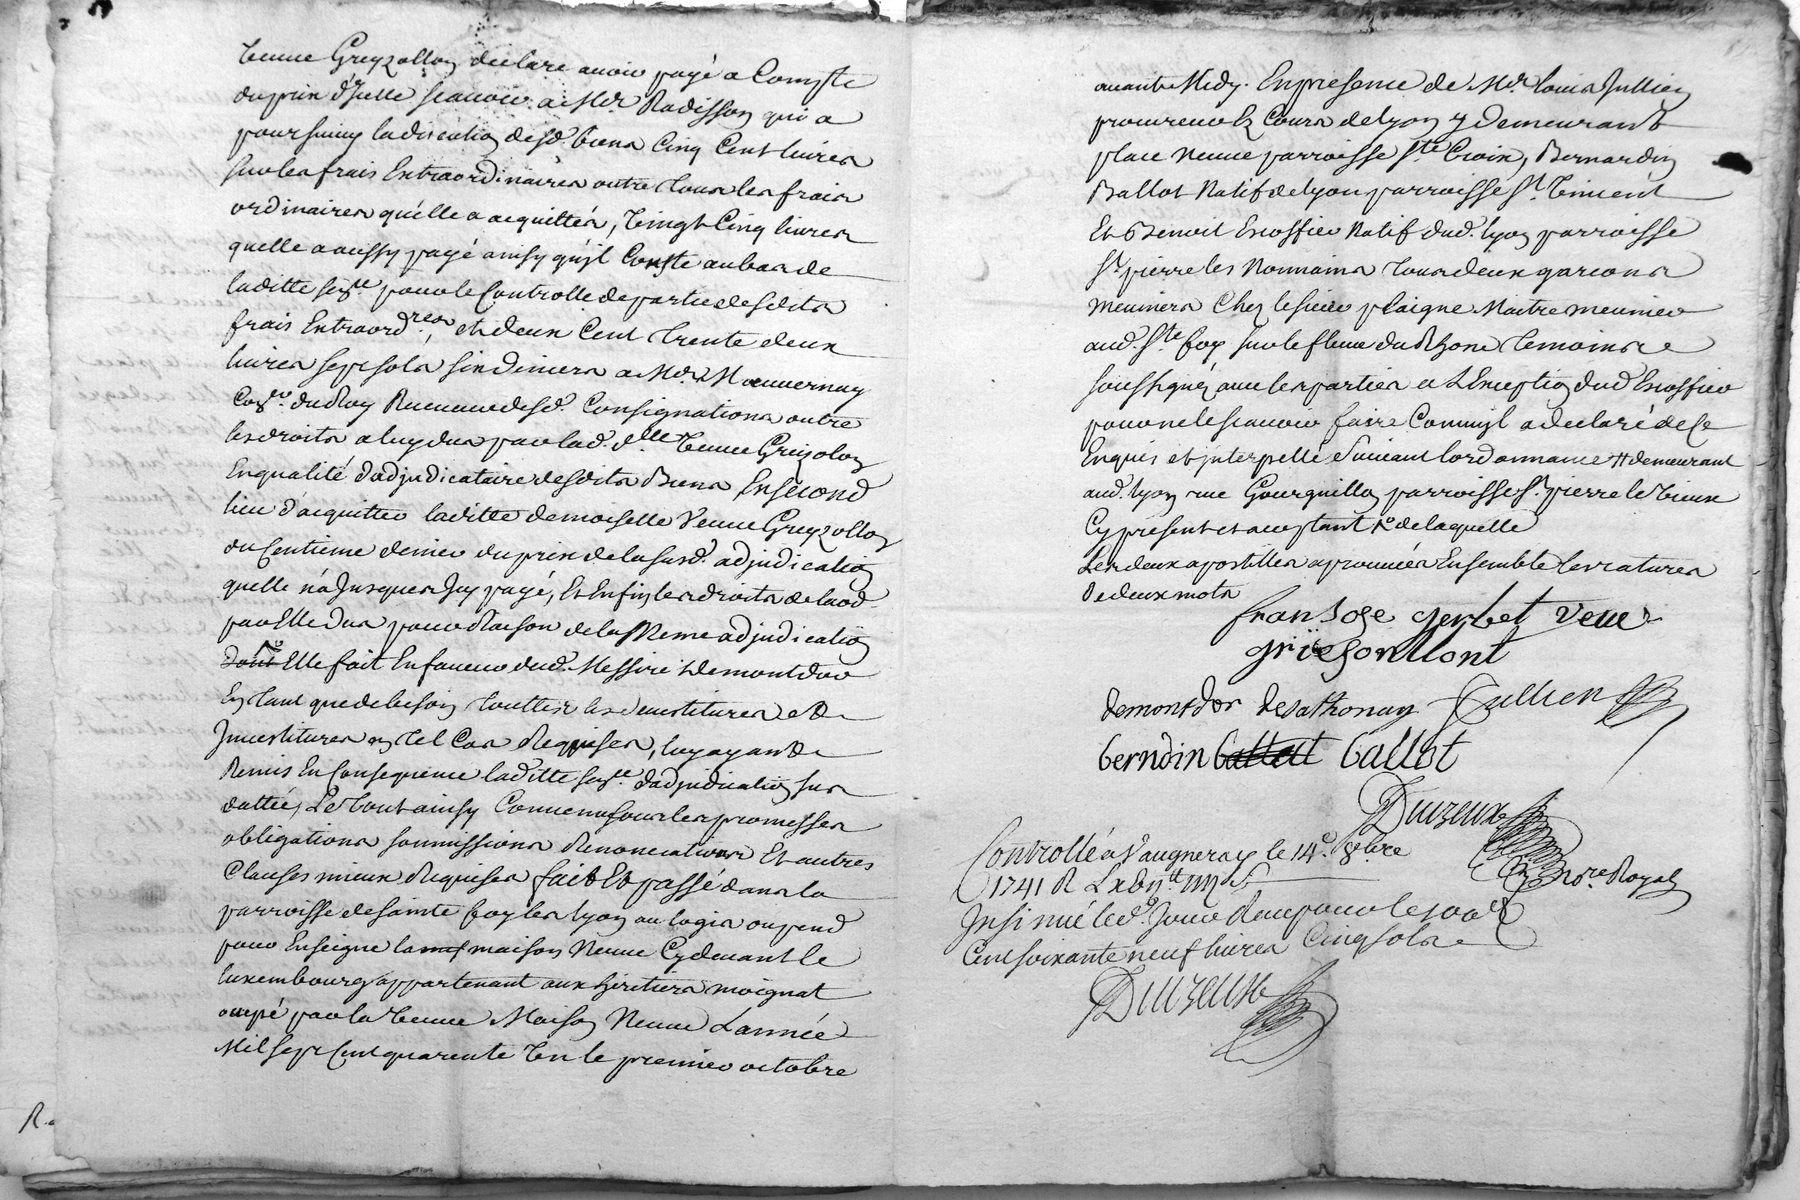 veuve Greyzollon declare avoir payé a Compte
du prix d'Icelle scavoir a Mer Radisson qui a
poursuivy la discution desd. biens Cinq Cent livres
sur les frais Extraordinaires outre tous les frais
ordinaires qu'elle a acquittés, vingt Cinq livres
quelle a aussy payé ainsy qu'jl Conste au bas de
laditte sentce pour le Controlle de partie desdits
frais Extraordres, et deux Cent trente deux
livres sept sols six deniers a Mer Mauvernay
Coner du Roy Receveur desd. Consignations outre
les droits a luy dus par lad. dlle veuve Greizolon
En qualité d'adjudicataire desdits Biens En second
lieu d'acquitter laditte demoiselle veuve Greyzollon
du Centieme denier du prix de la susd. adjudication
quelle n'a Jusques Icy payé, Et Enfin les droits de laod
par Elle dus pour Raison de la Meme adjudication
dont Elle fait En faveur dud. Messire demontdor
En tant que de besoin touttes les devestitures et
Jnvestitures en tel Cas Requises, luy ayant
Remis En Consequence laditte sentce d'adjudication sus
dattée, Le tout ainsy Convenu sous les promesses
obligations soumissions Renonciations Et autres
Clauses mieux Requises fait Et passé dans la
parroisse de sainte foy les lyon au logis ou pend
pour Enseigne la maison Neuve Cy devant le
luxembourg appartenant aux heritiers moignat
occupé par la veuve Maison Neuve L'année
Mil sept Cent quarente Un le premier octobre
R.
avant Midy. En presence de Mer louis Jullien
procureur Ez Cours de lyon y demeurant
place Neuve parroisse Ste Croix, Bernardin
Ballot Natif de lyon parroisse St. Vincent
Et Benoit Escoffier Natif dud. lyon parroisse
St. pierre les Nonnains tous deux garcons
meuniers Chez le sieur plaigne Maitre meunier
aud. Ste foy sur le fleuve du Rhone temoins
soussignéz avec les parties a L'Exception dud Escoffier
pour ne le scavoir faire Comme jl a declaré de Ce
Enquis et jnterpellé suivant lordonnance # demeurant
aud. lyon rue Gourguillon parroisse St. pierre le vieux
Cy present et acceptant de laquelle
Les deux apostilles aprouvées Ensemble les ratures
de deux mots
fransose gerbet veuve
grïesonllont
demontdor desathonay Jullien
berndin ballot
Duizeux
Nore Royal
Controllé a Vaugneray le 14e. 8bre
1741 R
Insinué led. Jour Reçu pour le 100e
Cent soixante neuf livres Cinq sols
Duizeux